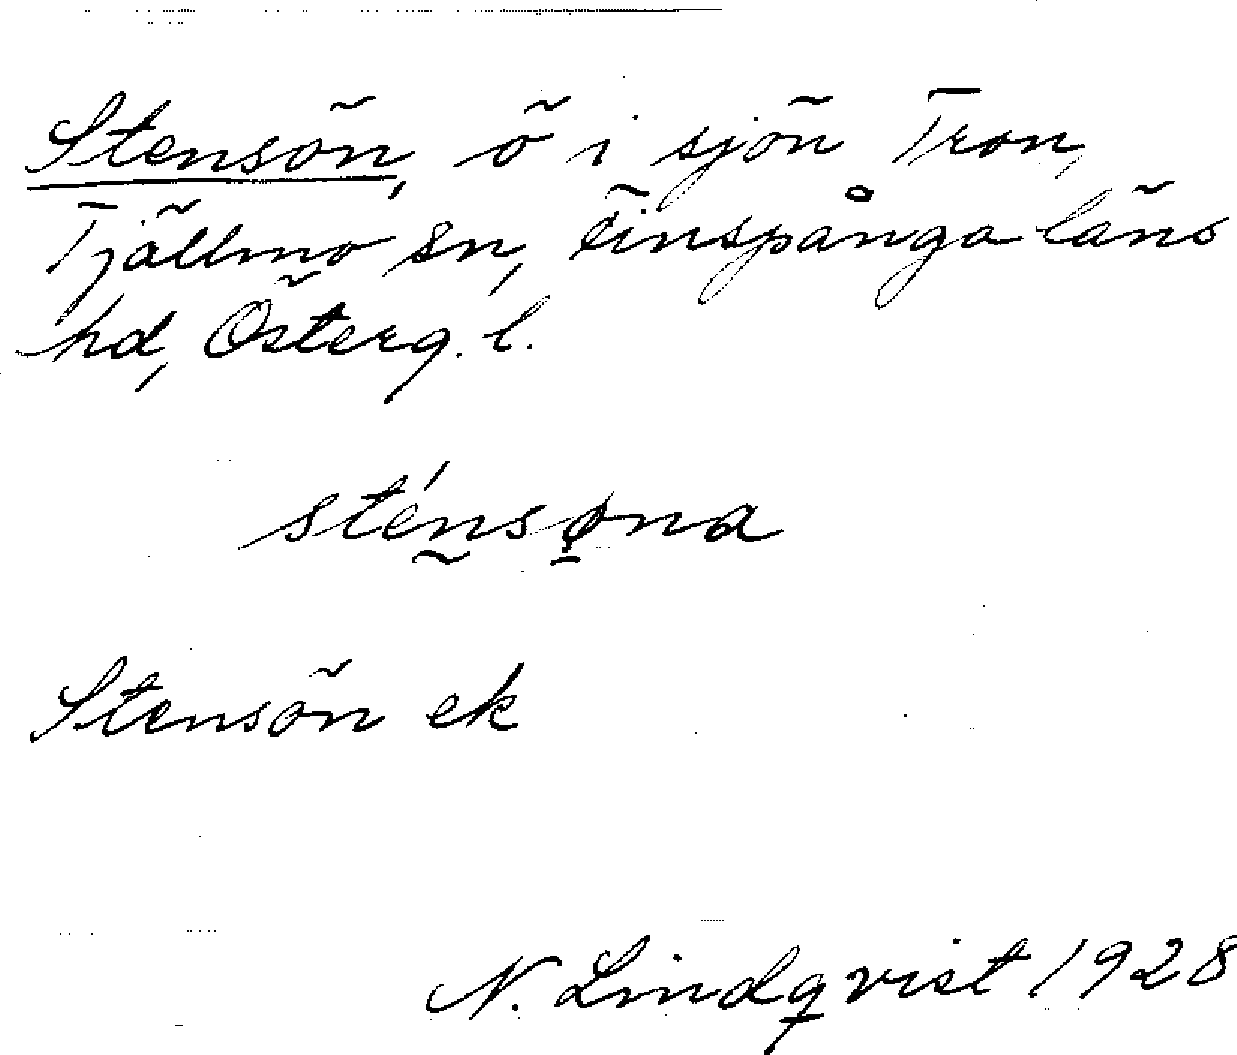 Stensön, ö i sjön Tron,
Tjällmo sn, Finspånga läns
hd, Österg. l.
sténsøna
Stensön ek
N. Lindqvist 1928